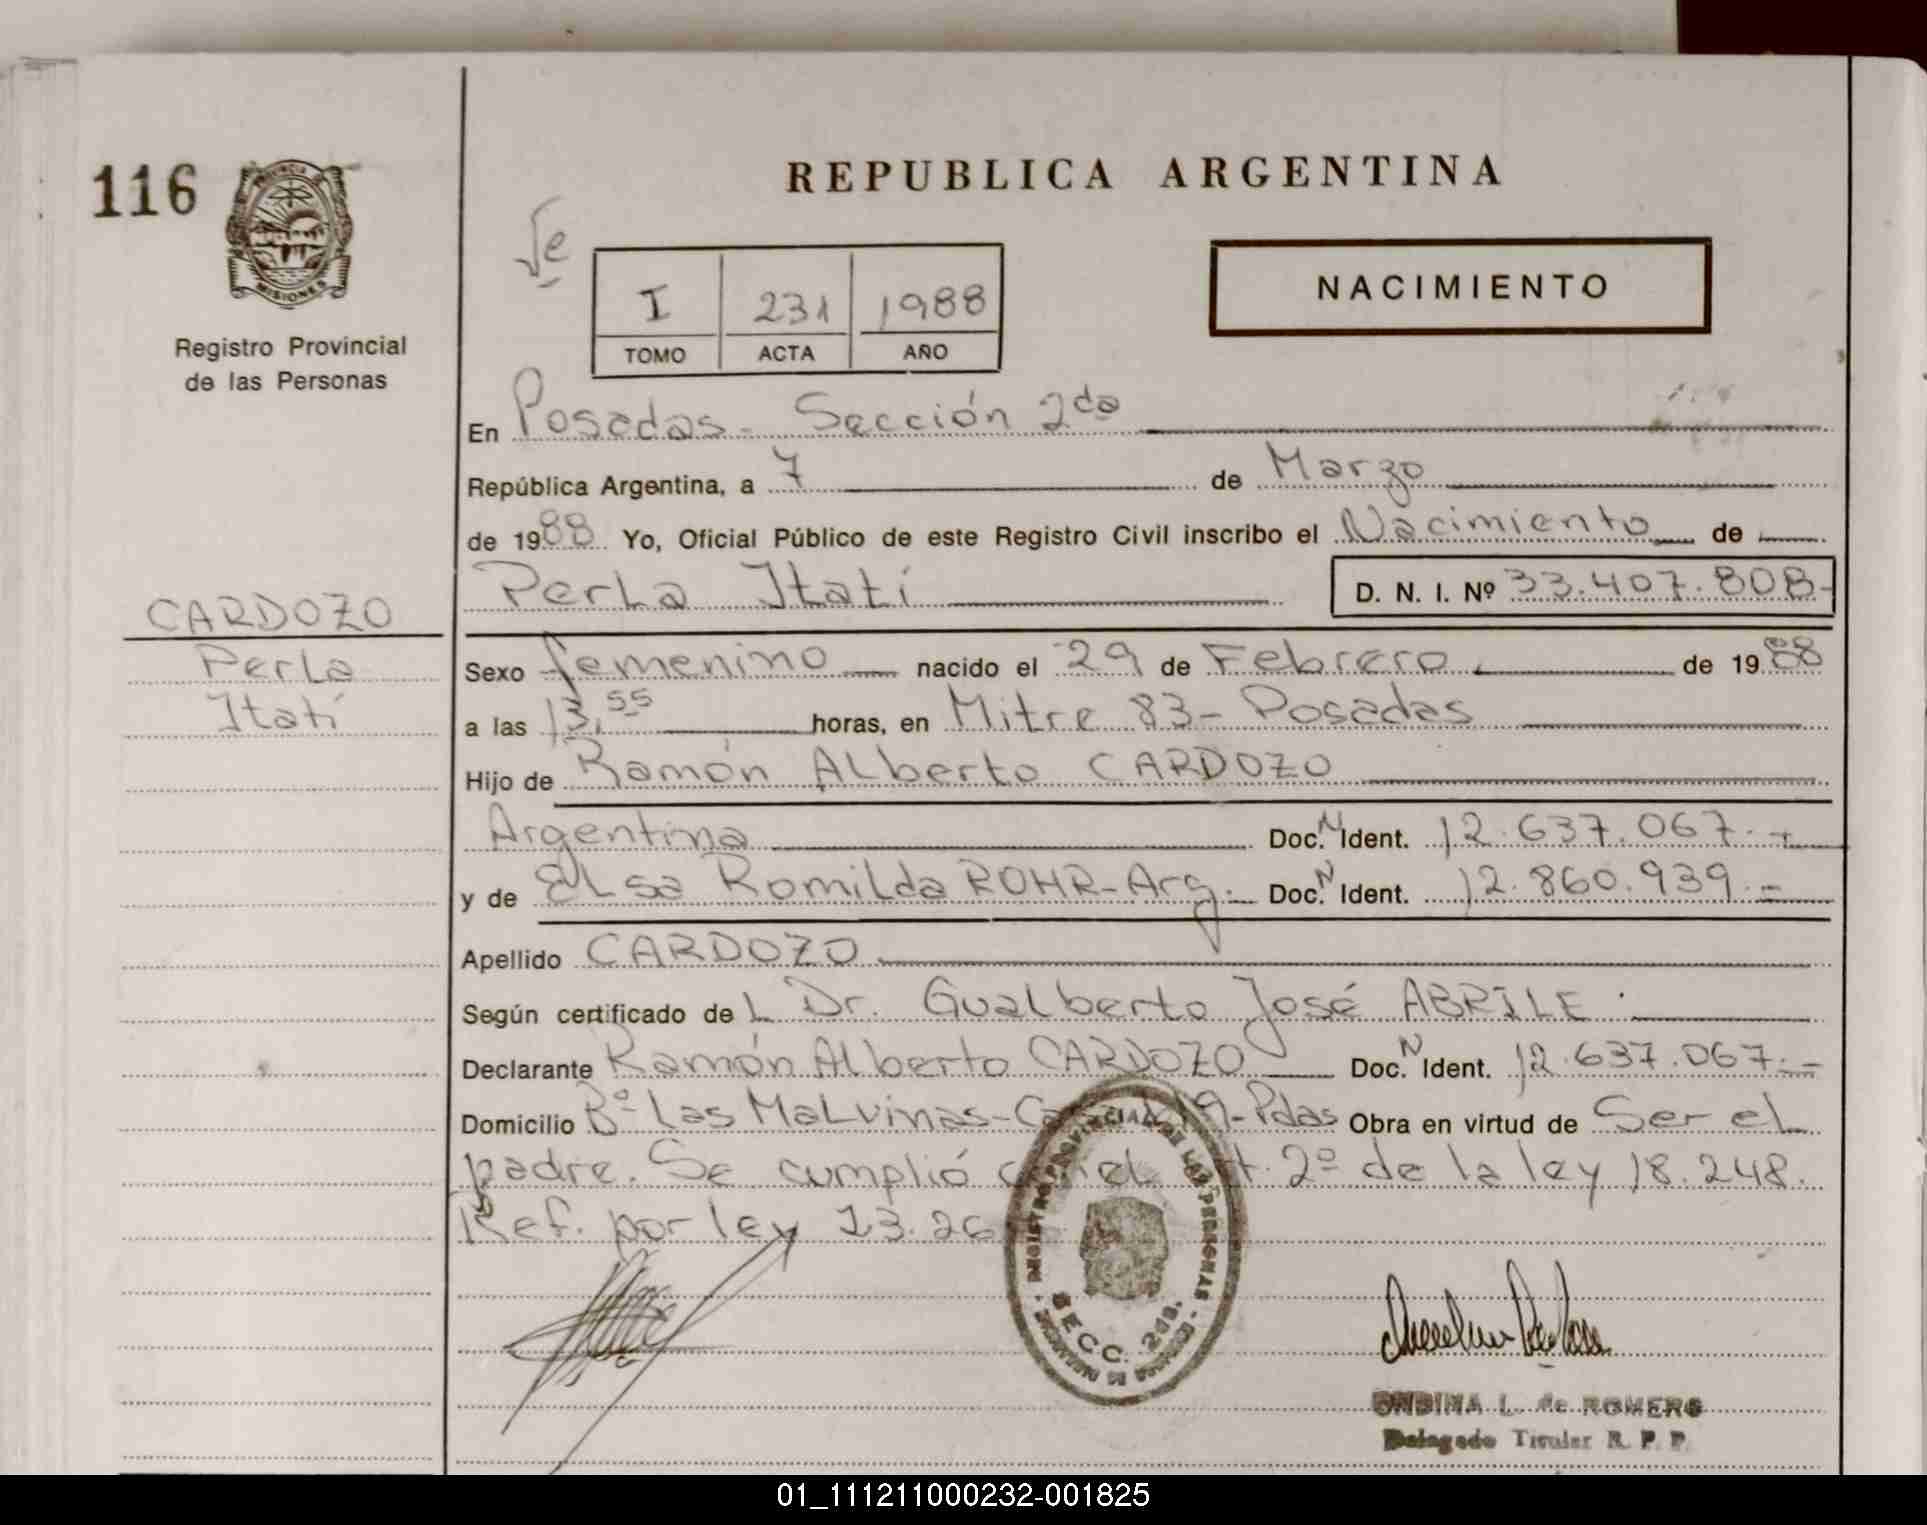 116
PROVINCIA
MISIONES
Registro Provincial
de las Personas
REPUBLICA ARGENTINA
I 231 1988
TOMO ACTA AÑO
NACIMIENTO
En Posadas - Sección 2da
República Argentina, a 7 de Marzo
de 1988 Yo, Oficial Público de este Registro Civil inscribo el Nacimiento de
Perla Itatí D. N. I. Nº 33.407.808-
CARDOZO
Perla
Itatí
Sexo femenino nacido el 29 de Febrero de 1988
a las 13,55 horas, en Mitre 83 - Posadas
Hijo de Ramón Alberto CARDOZO
Argentina Doc. N Ident. 12.637.067.-
y de Elsa Romilda ROHR - Arg. Doc. N Ident. 12.860.939.-
Apellido CARDOZO
Según certificado del Dr. Gualberto José ABRILE
Declarante Ramón Alberto CARDOZO Doc. N Ident. 12.637.067.-
Domicilio Bº Las Malvinas - 19 - Pdas Obra en virtud de Ser el
padre. Se cumplió el 2º de la ley 18.248.
Ref. por ley 23.26
REGISTRO PROVINCIAL DE LAS PERSONAS
SECC. 2da.
ONDINA L. de ROMERO
Delegado Titular R. P. P.
01_111211000232-001825